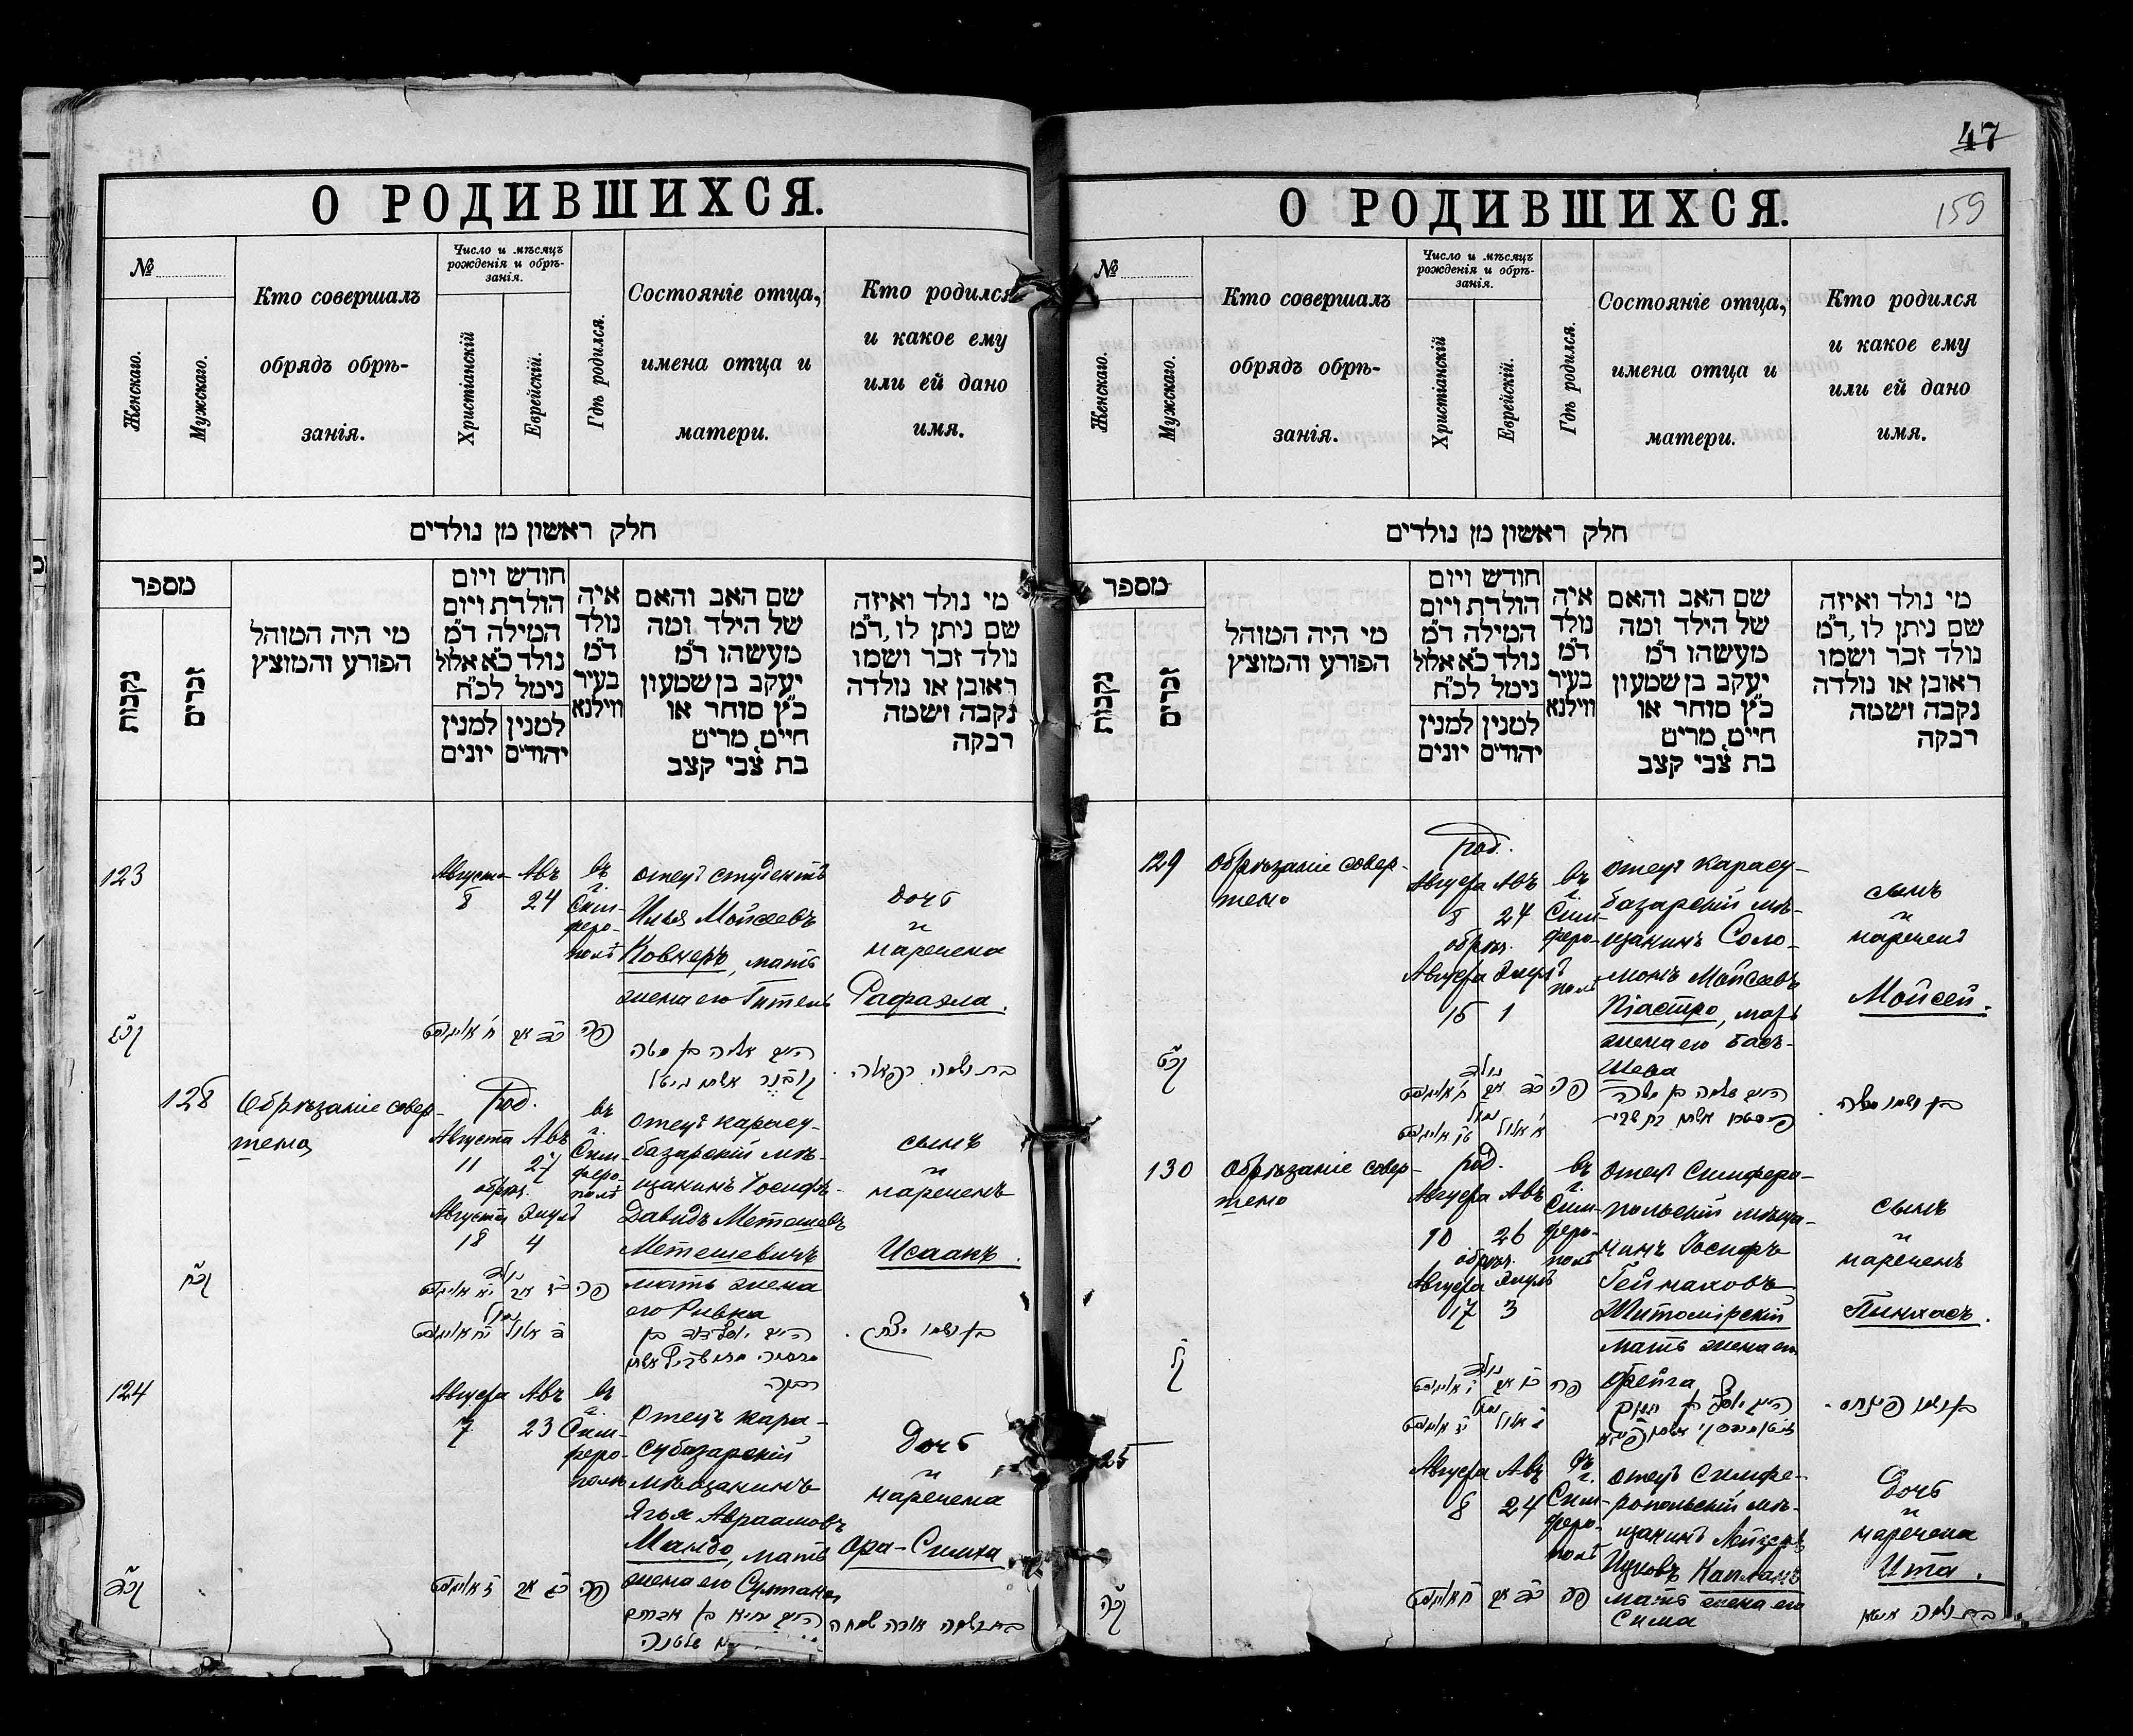 О РОДИВШИХСЯ.
№
Женскаго.
Мужскаго.
Кто совершалъ
обрядъ обрѣ-
занія.
Число и мѣсяцъ
рожденія и обрѣ-
занія.
Христіанскій
Еврейскій.
Гдѣ родился.
Состояніе отца,
имена отца и
матери.
Кто родился
и какое ему
или ей дано
имя.
חלק ראשון מן נולדים
מספר
נקבות
זכרים
מי היה המוהל
הפורע והמוצץ
חודש ויום
הולדת ויום
המילה ד״מ
נולד כ״א אלול
נימל לכ״ח
למנין יונים
למנין יהודים
איה
נולד
ד״מ
בעיר
ווילנא
שם האב והאם
של הילד ומה
מעשהו ד״מ
יעקב בן שמעון
כ״ץ סוחר או
חייט, מרים
בת צבי קצב
מי נולד ואיזה
שם ניתן לו, ד״מ
נולד זכר ושמו
ראובן או נולדה
נקבה ושמה
רבקה
123
Августа 8
Авъ 24
въ г. Сим-
феро-
полѣ
отецъ студентъ
Илья Мойсеевъ
Ковнеръ, мать
жена его Гитель
дочь
и
наречена
Рафаэла.
קכג
ח אויגוסט
כד אב
פה
128
Обрѣзаніе совер-
шено
Род.
Августа 11
Авъ 27
обрѣз.
Августа 18
Элулъ 4
въ г. Сим-
феро-
полѣ
отецъ карасу-
базарскій мѣ-
щанинъ Іосифъ-
Давидъ Метешевъ
Метешевичъ
мать жена
его Ривка
сынъ
и
нареченъ
Исаакъ.
קכח
נולד
יא אויגוסט
כז אב
פה
נמול
יח אויגוסט
ד אלול
רבקה
בן ושמו יצחק.
124
Августа 7
Авъ 23
въ г. Сим-
феро-
полѣ
Отецъ кара-
субазарскій
мѣщанинъ
Ягья Авраамовъ
Мандо, мать
жена его Султана
дочь
и
наречена
Ора-Симха
קכד
ז אויגוסט
כג אב
פה
בת ושמה אורה שמחה
47
159
О РОДИВШИХСЯ.
№
Женскаго.
Мужскаго.
Кто совершалъ
обрядъ обрѣ-
занія.
Число и мѣсяцъ
рожденія и обрѣ-
занія.
Христіанскій
Еврейскій.
Гдѣ родился.
Состояніе отца,
имена отца и
матери.
Кто родился
и какое ему
или ей дано
имя.
חלק ראשון מן נולדים
מספר
נקבות
זכרים
מי היה המוהל
הפורע והמוצץ
חודש ויום
הולדת ויום
המילה ד״מ
נולד כ״א אלול
נימל לכ״ח
למנין יונים
למנין יהודים
איה
נולד
ד״מ
בעיר
ווילנא
שם האב והאם
של הילד ומה
מעשהו ד״מ
יעקב בן שמעון
כ״ץ סוחר או
חייט, מרים
בת צבי קצב
מי נולד ואיזה
שם ניתן לו, ד״מ
נולד זכר ושמו
ראובן או נולדה
נקבה ושמה
רבקה
129
Обрѣзаніе совер-
шено
Род.
Августа 8
Авъ 24
обрѣз.
Августа 15
Элулъ 1
въ г. Сим-
феро-
полѣ
отецъ карасу-
базарскій мѣ-
щанинъ Соло-
монъ Мойсеевъ
Піастро, мать
жена его Бать-
Шева
сынъ
и
нареченъ
Мойсей.
קכט
נולד
ח אויגוסט
כד אב
פה
נמול
טו אויגוסט
א אלול
בן ושמו משה.
130
Обрѣзаніе совер-
шено
род.
Августа 10
Авъ 26
обрѣз.
Августа 17
Элулъ 3
въ г. Сим-
феро-
полѣ
отецъ Симферо-
польскій мѣща-
нинъ Іосифъ
Геймаховъ
Житомірскій
мать жена его
Фрейга
сынъ
и
нареченъ
Пинхасъ.
קל
נולד
י אויגוסט
כו אב
פה
נמול
יז אויגוסט
ג אלול
בן ושמו פינחס.
125
Августа 8
Авъ 24
въ г. Сим-
феро-
полѣ
отецъ Симфе-
ропольскій мѣ-
щанинъ Лейзеръ
Ицковъ Капланъ
мать жена его
Сима
дочь
и
наречена
Ита.
קכה
ח אויגוסט
כד אב
פה
בת ושמה איטא